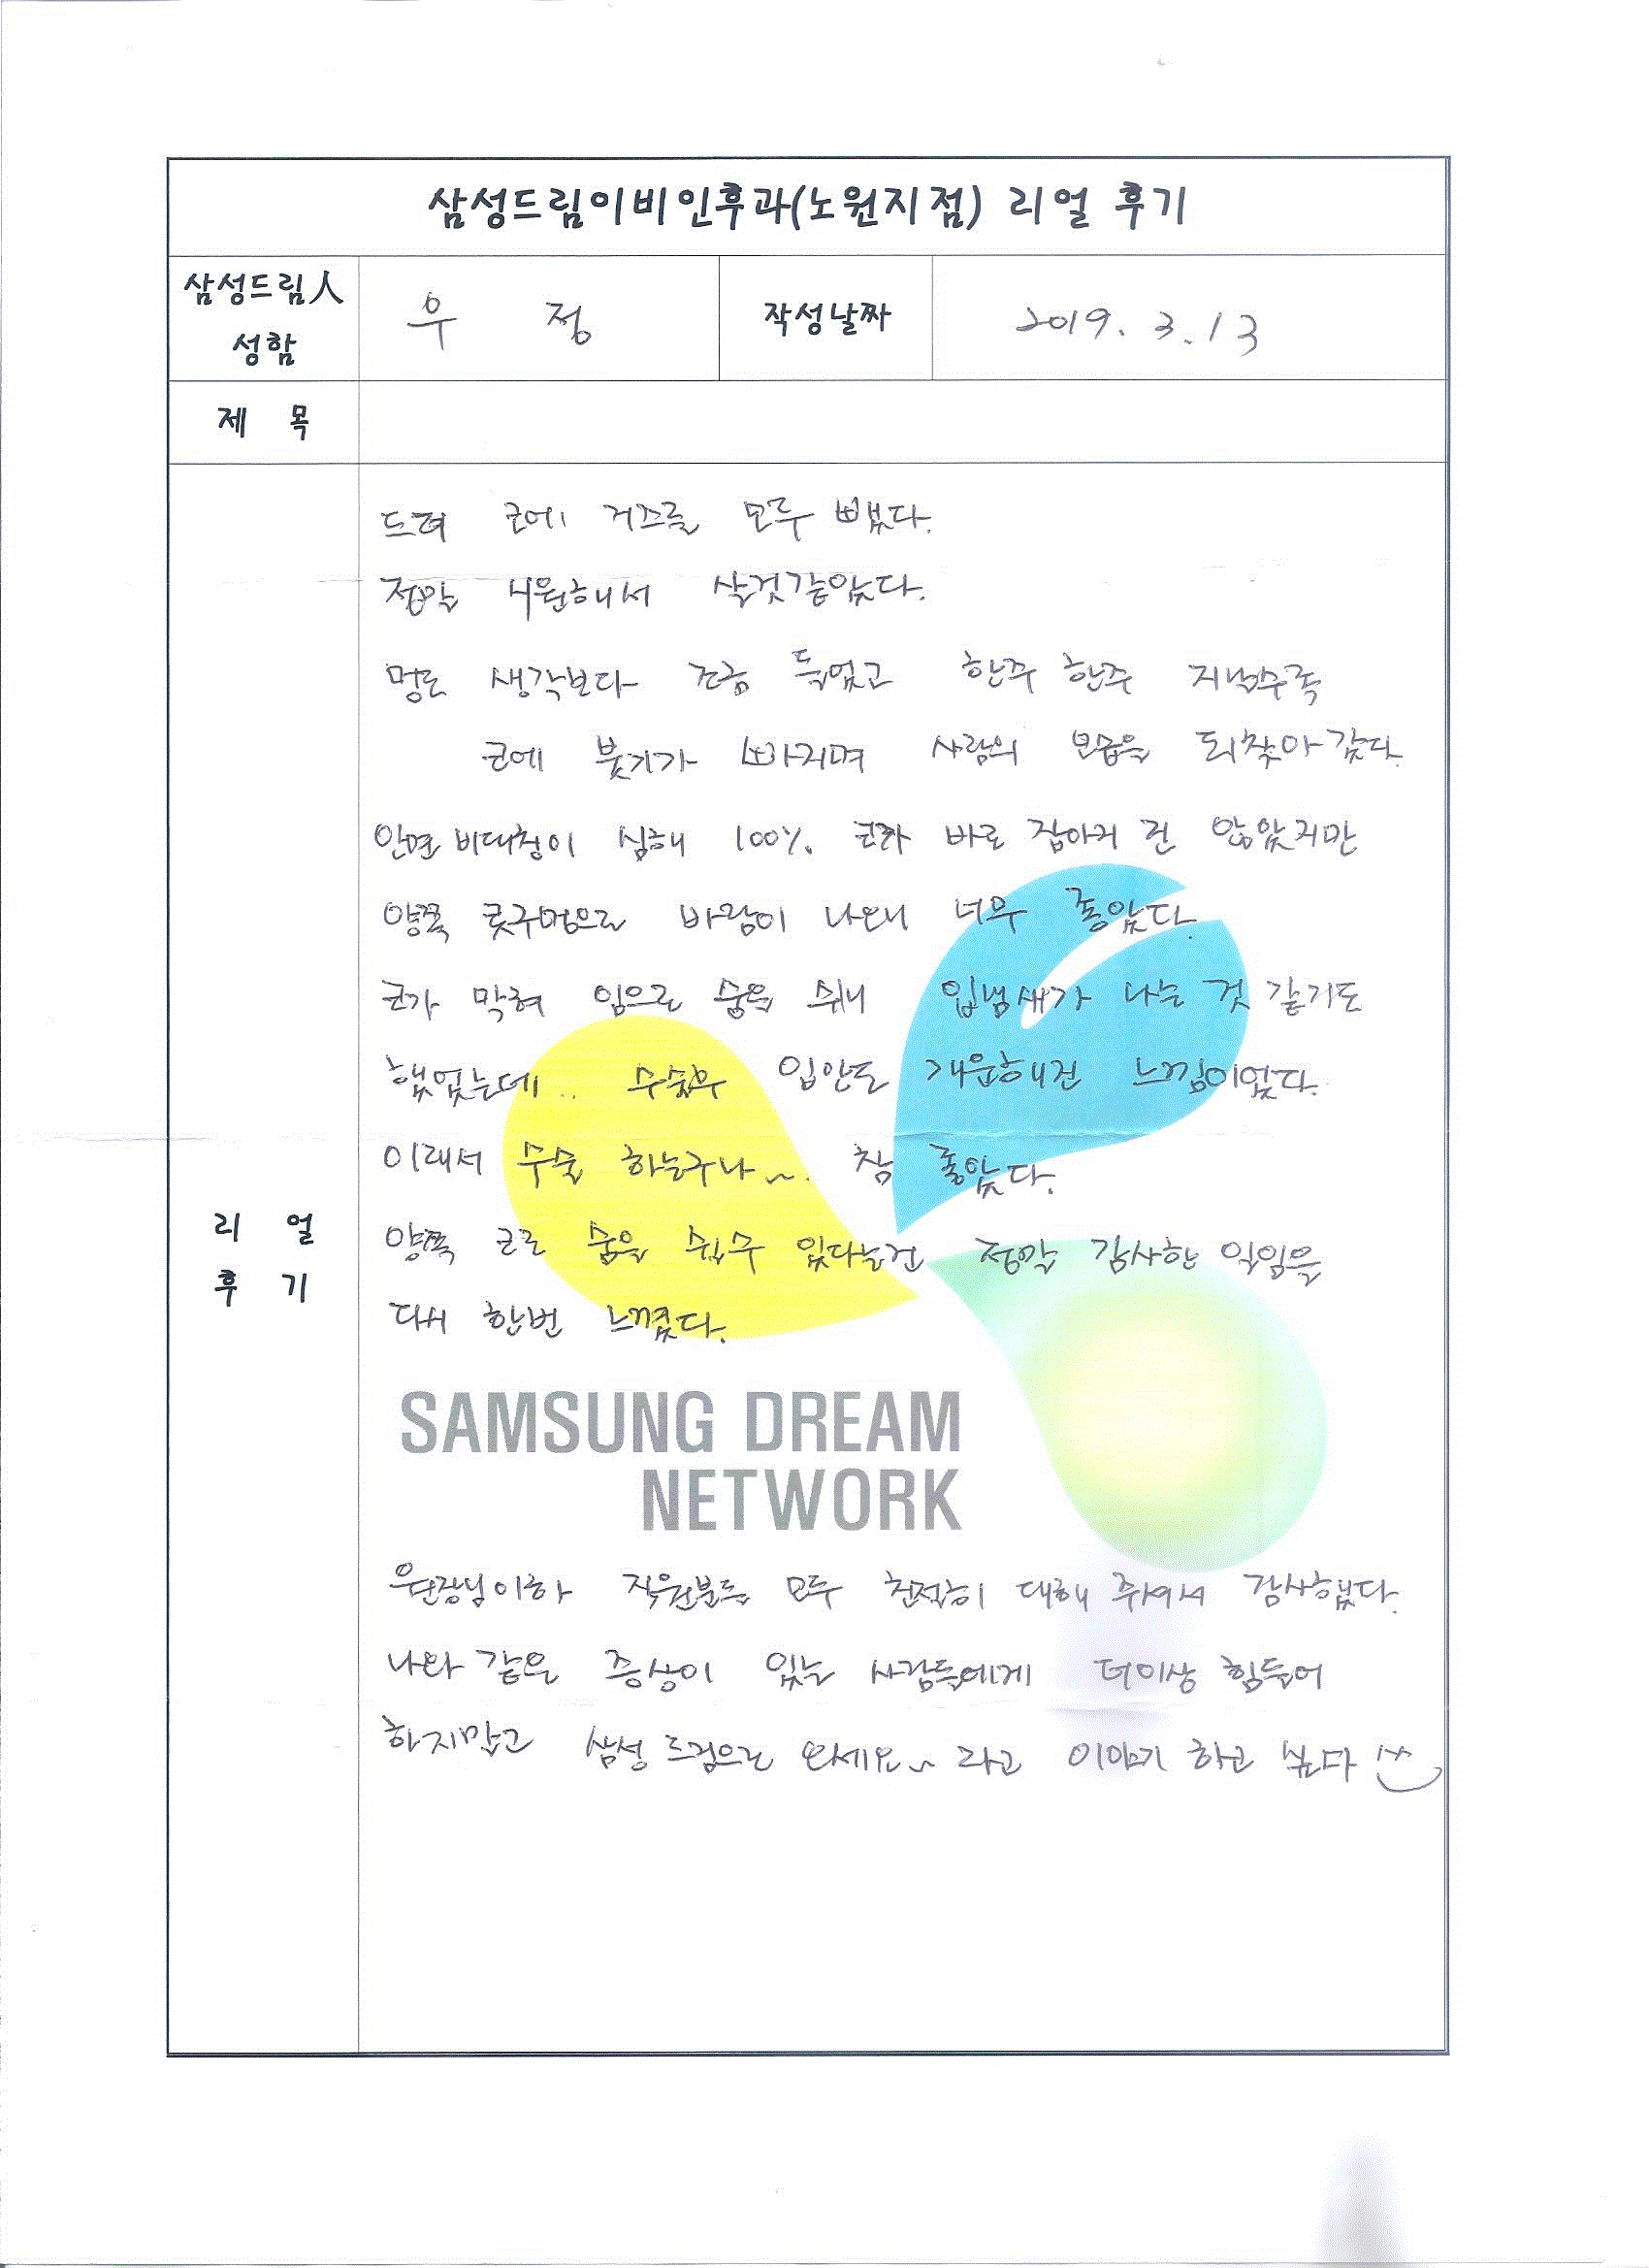 삼성드림이비인후과(노원지점) 리얼 후기
삼성드림人
성함
우 정
작성날짜
2019. 3. 13
제 목
리 얼
후 기
드뎌 코에 거즈를 모두 뺐다.
정말 시원해서 살것같았다.
멍도 생각보다 조금 들었고 한주 한주 지날수록
코에 붓기가 빠지며 사람의 모습을 되찾아 갔다.
안면 비대칭이 심해 100% 코가 바로 잡아지진 않았지만
양쪽 콧구멍으로 바람이 나오니 너무 좋았다.
코가 막혀 입으로 숨을 쉬니 입냄새가 나는 것 같기도
했었는데.. 수술후 입안도 개운해진 느낌이었다.
이래서 수술 하는구나~. 참 좋았다.
양쪽 코로 숨을 쉴수 있다는건 정말 감사한 일임을
다시 한번 느꼈다.
SAMSUNG DREAM
NETWORK
원장님이하 직원분들 모두 친절히 대해 주셔서 감사했다.
나와 같은 증상이 있는 사람들에게 더이상 힘들어
하지말고 삼성드림으로 오세요~ 라고 이야기 하고 싶다